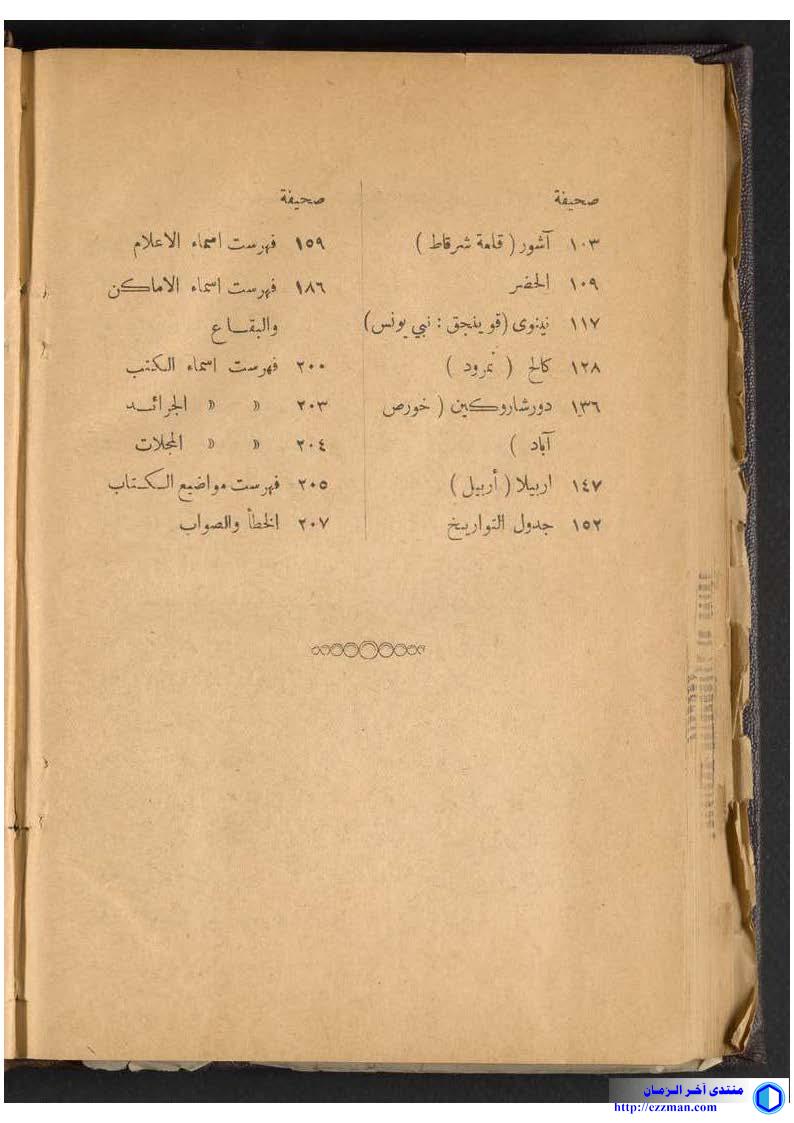 صحيفة
١٠٣ آشور ( قلعة شرقاط )
١٠٩ الحضر
١١٧ نينوى (قوينجق : نبي يونس)
١٢٨ كالح ( نمرود )
١٣٦ دورشاروكين ( خورص
آباد )
١٤٧ اربيلا ( أربيل )
١٥٢ جدول التواريخ
صحيفة
١٥٩ فهرست اسماء الاعلام
١٨٦ فهرست اسماء الاماكن
والبقاع
٢٠٠ فهرست اسماء الكتب
٢٠٣ » » الجرائد
٢٠٤ » » المجلات
٢٠٥ فهرست مواضيع الكتاب
٢٠٧ الخطأ والصواب
منتدى آخر الزمان
http://ezzman.com